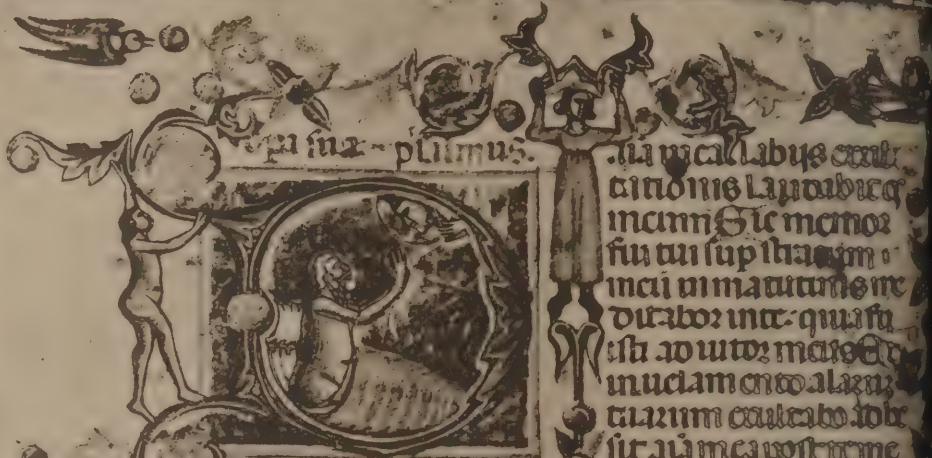 mea labijs exul
tationis laudabit os
meum Sic memor
fui tui sup stratum
meū in matutinis me
ditabor in te quia fu
isti adiutor meus Et
in uelamento alarū
tuarum exultabo adhe
sit aīa mea post te me